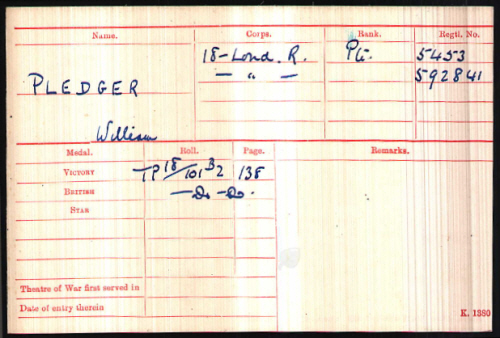 Name. Corps. Rank. Regtl. No.
18-Lond. R. Pte. 5453
— " — 592841
PLEDGER
William
Medal. Roll. Page. Remarks.
VICTORY TP 18/101 B2 138
BRITISH —Do— Do.
STAR
Theatre of War first served in
Date of entry therein
K. 1380